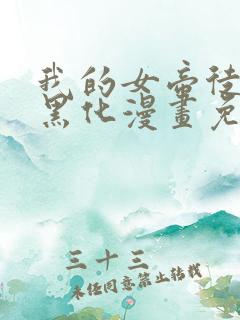 我的女帝徒
黑化漫畫免
三十三
未经同意禁止转载